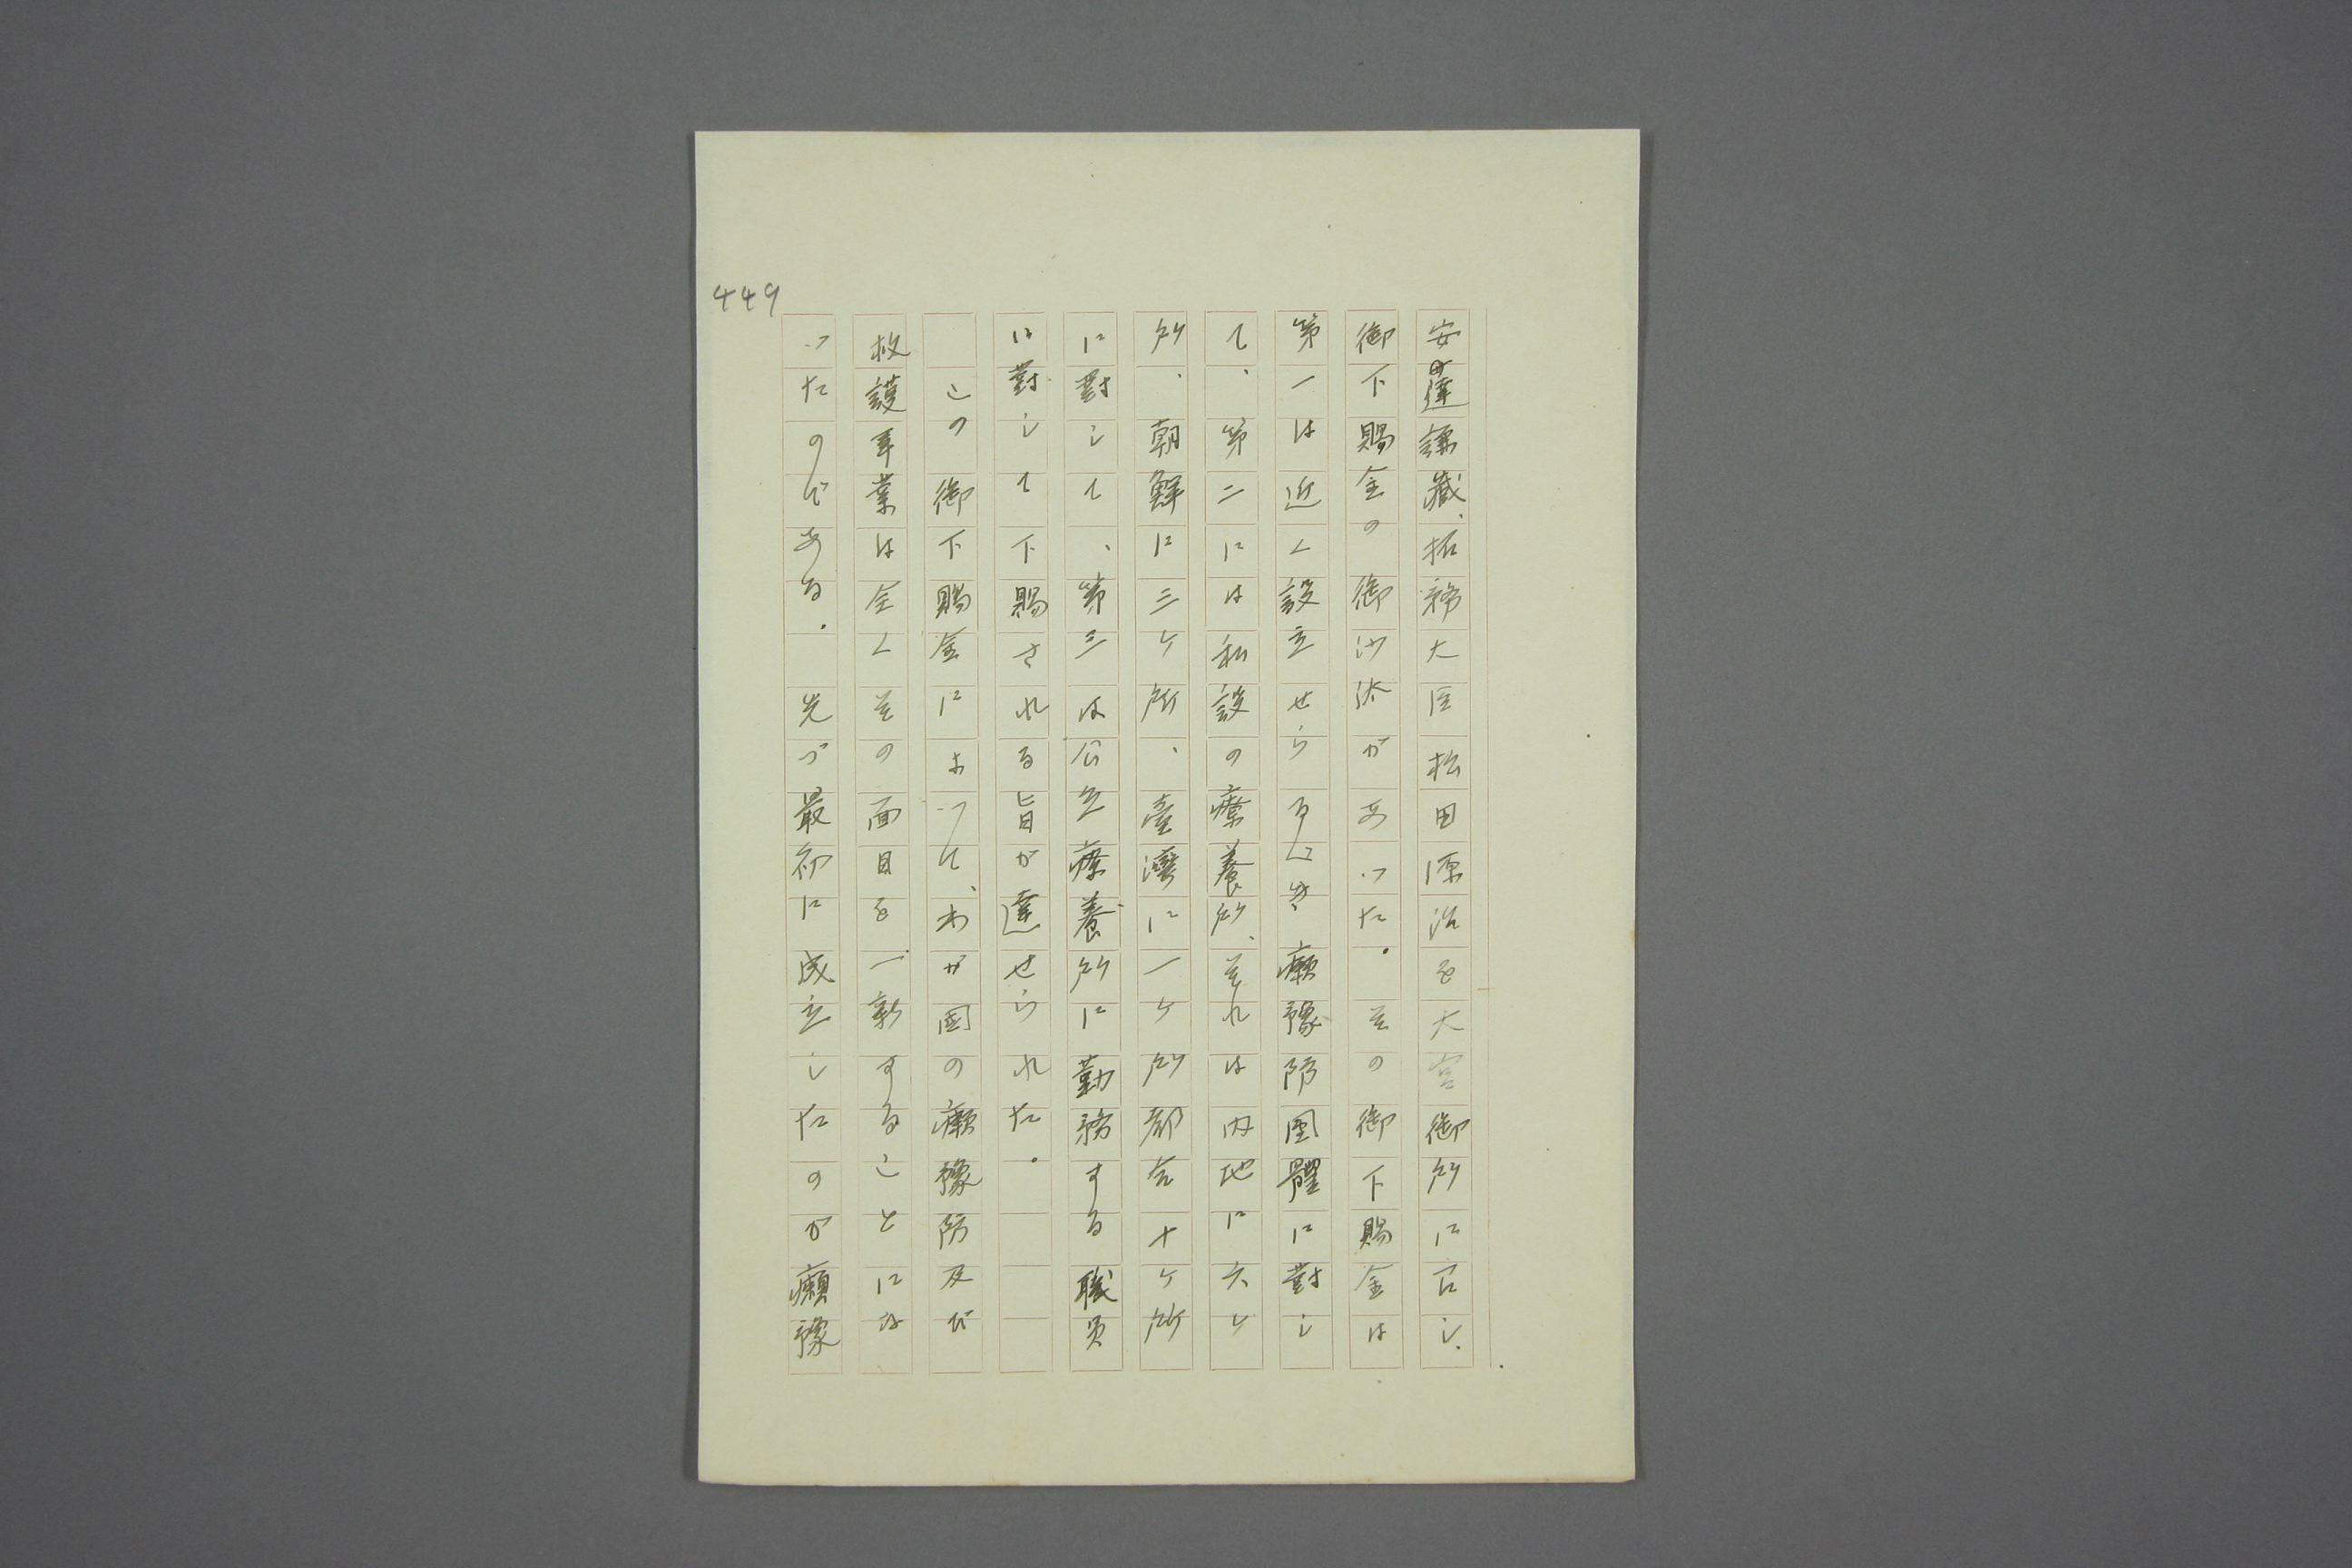 449
安達謙藏、拓務大臣松田源治を大宮御所に召し、
御下賜金の御沙汰があった。その御下賜金は
第一は近く設立せらるべき癩豫防團體に對し
て、第二には私設の療養所、それは内地に六ヶ
所、朝鮮に三ヶ所、臺灣に一ヶ所都合十ヶ所
に對して、第三は公立療養所に勤務する職員
に對して下賜される旨が達せられた。
この御下賜金によって、わが国の癩豫防及び
救護事業は全くその面目を一新することにな
ったのである。先づ最初に成立したのが癩豫